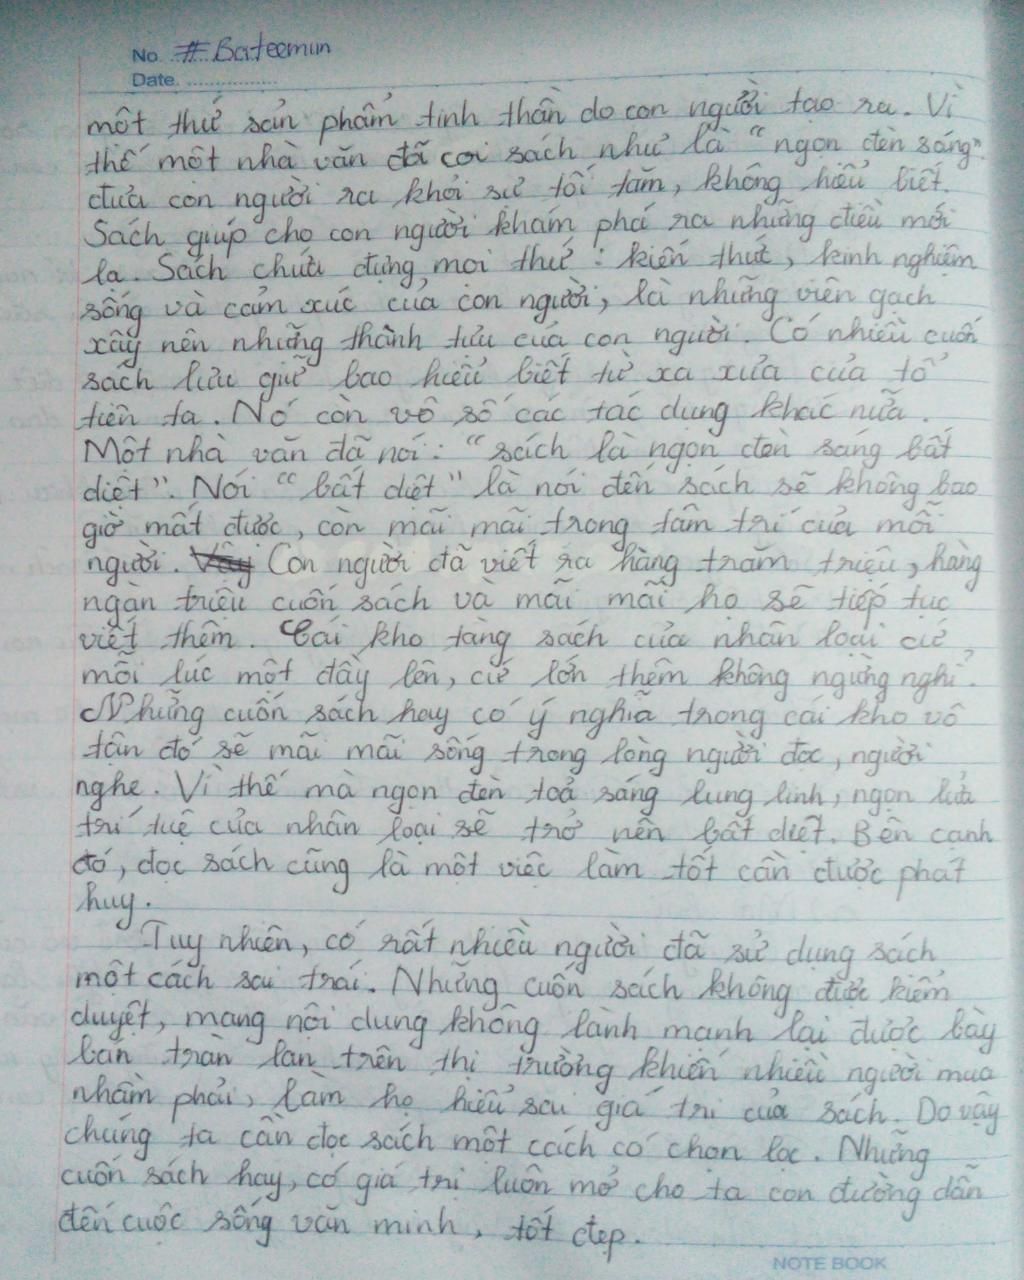 No. # Bateemun
Date. ................
một thứ sản phẩm tinh thần do con người tạo ra. Vì
thế một nhà văn đã coi sách như là “ngọn đèn sáng”
đưa con người ra khỏi sự tối tăm, không hiểu biết.
Sách giúp cho con người khám phá ra những điều mới
lạ. Sách chứa đựng mọi thứ : kiến thức, kinh nghiệm
sống và cảm xúc của con người, là những viên gạch
xây nên những thành tựu của con người. Có nhiều cuốn
sách lưu giữ bao hiểu biết từ xa xưa của tổ
tiên ta. Nó còn vô số các tác dụng khác nữa.
Một nhà văn đã nói: “sách là ngọn đèn sáng bất
diệt”. Nói “bất diệt” là nói đến sách sẽ không bao
giờ mất được, còn mãi mãi trong tâm trí của mỗi
người. Vậy Con người đã viết ra hàng trăm triệu, hàng
ngàn triệu cuốn sách và mãi mãi họ sẽ tiếp tục
viết thêm. Cái kho tàng sách của nhân loại cứ
mỗi lúc một đầy lên, cứ lớn thêm không ngừng nghỉ.
Những cuốn sách hay có ý nghĩa trong cái kho vô
tận đó sẽ mãi mãi sống trong lòng người đọc, người
nghe. Vì thế mà ngọn đèn toả sáng lung linh, ngọn lửa
trí tuệ của nhân loại sẽ trở nên bất diệt. Bên cạnh
đó, đọc sách cũng là một việc làm tốt cần được phát
huy.
Tuy nhiên, có rất nhiều người đã sử dụng sách
một cách sai trái. Những cuốn sách không được kiểm
duyệt, mang nội dung không lành mạnh lại được bày
bán tràn lan trên thị trường khiến nhiều người mua
nhầm phải, làm họ hiểu sai giá trị của sách. Do vậy
chúng ta cần đọc sách một cách có chọn lọc. Những
cuốn sách hay, có giá trị luôn mở cho ta con đường dẫn
đến cuộc sống văn minh, tốt đẹp.
NOTE BOOK